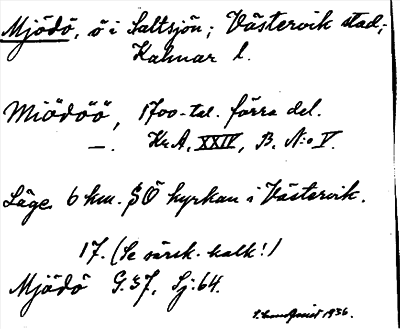 Mjödö, ö i Saltsjön; Västervik stad;
Kalmar l.
Miödöö, 1700-tal. förra del.
—. Kr.A, XXIV, B. N:o V.
Läge. 6 km. SÖ kyrkan i Västervik.
17. (Se särsk. kalk!)
Mjödö G:37, Sj:64.
1936.